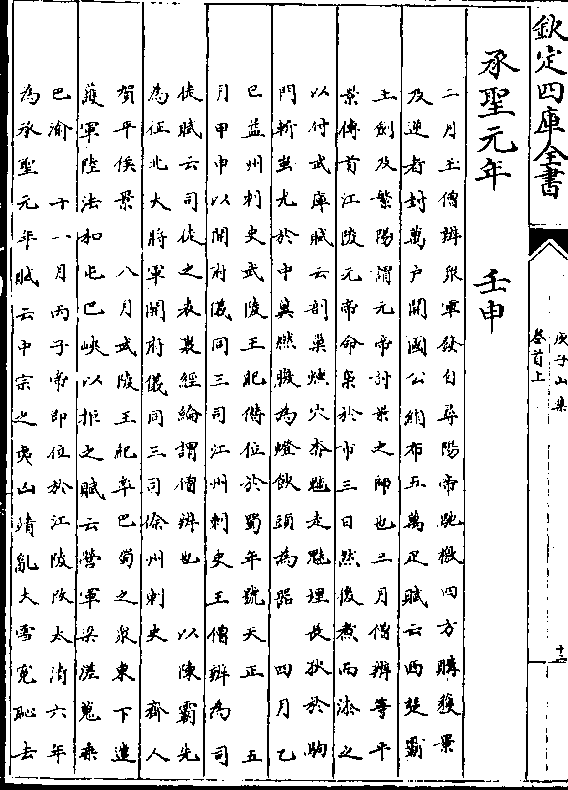 欽定四庫全書
庾子山集
卷首上
十二
承聖元年　壬申
二月王僧辨衆軍發自尋陽帝馳檄四方購獲景
及逆者封萬户開國公絹布五萬疋賦云西楚霸
王劍及繁陽謂元帝討景之師也三月僧辨等平
景傳首江陵元帝命梟於市三日然後煮而漆之
以付武庫賦云剖巢燻穴奔魑走魅埋長狄於駒
門斬蚩尤於中冀燃腹為燈飲頭為器　四月乙
巳益州刺史武陵王紀僭位於蜀年號天正　五
月甲申以開府儀同三司江州刺史王僧辨為司
徒賦云司徒之表裏經綸謂僧辨也　以陳霸先
為征北大將軍開府儀同三司徐州刺史　齊人
賀平侯景　八月武陵王紀率巴蜀之衆東下遣
護軍陸法和屯巴峽以拒之賦云營軍梁溠蒐乘
巴渝　十一月丙子帝即位於江陵改太清六年
為承聖元年賦云中宗之夷凶靖亂大雪冤恥去